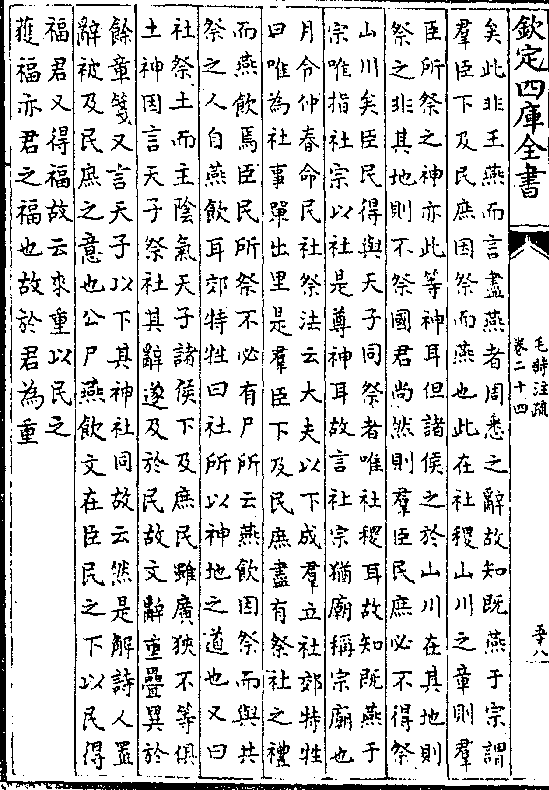 欽定四庫全書
毛詩注疏
卷二十四
五十八
矣此非王燕而言盡燕者周悉之辭故知既燕于宗謂
羣臣下及民庶因祭而燕也此在社稷山川之章則羣
臣所祭之神亦此等神耳但諸侯之於山川在其地則
祭之非其地則不祭國君尚然則羣臣民庶必不得祭
山川矣臣民得與天子同祭者唯社稷耳故知既燕于
宗唯指社宗以社是尊神耳故言社宗猶廟稱宗廟也
月令仲春命民社祭法云大夫以下成羣立社郊特牲
曰唯為社事單出里是羣臣下及民庶盡有祭社之禮
而燕飲焉臣民所祭不必有尸所云燕飲因祭而與共
祭之人自燕飲耳郊特牲曰社所以神地之道也又曰
社祭土而主陰氣天子諸侯下及庶民雖廣狹不等俱
土神因言天子祭社其辭遂及於民故文辭重疊異於
餘章箋又言天子以下其神社同故云然是解詩人置
辭被及民庶之意也公尸燕飲文在臣民之下以民得
福君又得福故云來重以民之
獲福亦君之福也故於君為重